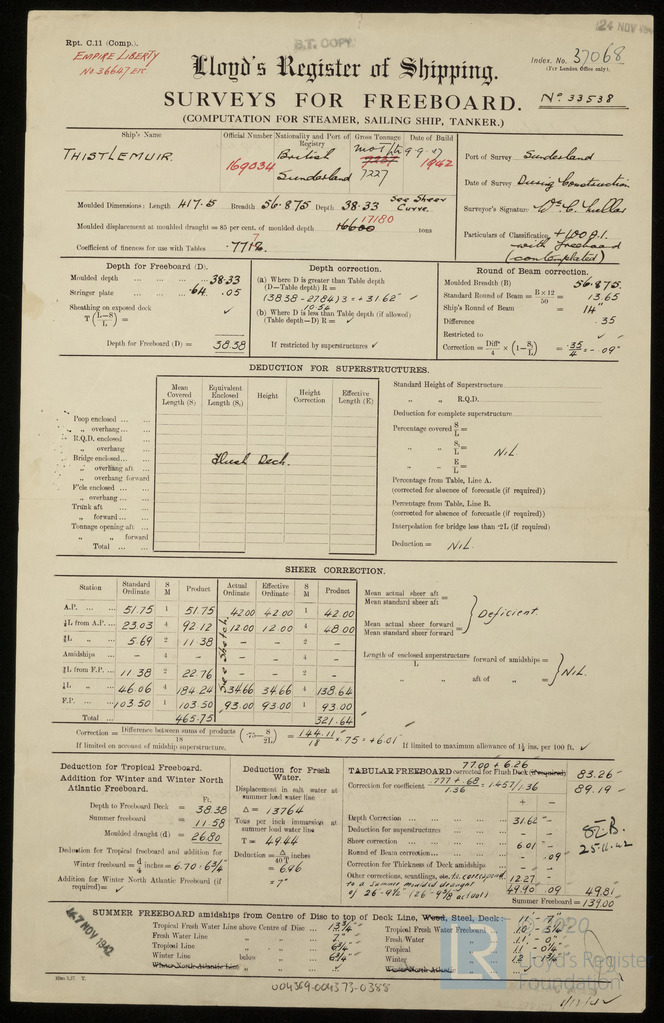 24 NOV
Rpt. C.11 (Comp.).
B.T. COPY
EMPIRE LIBERTY
No 36647 ETC
Index. No. 37068
(For London Office only).
Lloyd's Register of Shipping.
SURVEYS FOR FREEBOARD.
No 33538
(COMPUTATION FOR STEAMER, SAILING SHIP, TANKER.)
Ship's Name
Official Number
Nationality and Port of Registry
Gross Tonnage
Date of Build
THISTLEMUIR.
169034
British
Sunderland
7227
1942
Port of Survey Sunderland
Date of Survey During Construction
Surveyor's Signature
Particulars of Classification +100A1.
with freeboard
(contemplated)
Moulded Dimensions: Length 417.5 Breadth 56.875 Depth 38.33 See Sheer Curve.
Moulded displacement at moulded draught = 85 per cent. of moulded depth 16600 17180 tons
Coefficient of fineness for use with Tables .771
Depth for Freeboard (D).
Moulded depth ... 38.33
Stringer plate ... .64 .05
Sheathing on exposed deck ✓
T (L-S/L) =
Depth for Freeboard (D) = 38.38
Depth correction.
(a) Where D is greater than Table depth
(D—Table depth) R =
(38.38 - 27.84) 3 = + 31.62" ✓
10.54
(b) Where D is less than Table depth (if allowed)
(Table depth—D) R = ✓
If restricted by superstructures ✓
Round of Beam correction.
Moulded Breadth (B) 56.875
Standard Round of Beam = B×12/50 = 13.65
Ship's Round of Beam = 14"
Difference .35
Restricted to ✓
Correction = Diff/4 × (1-S1/L) = .35/4 = -.09"
DEDUCTION FOR SUPERSTRUCTURES.
Mean Covered Length (S)
Equivalent Enclosed Length (S1)
Height
Height Correction
Effective Length (E)
Poop enclosed
„ overhang
R.Q.D. enclosed
„ overhang
Bridge enclosed
„ overhang aft
„ overhang forward
F'cle enclosed
„ overhang
Trunk aft
„ forward
Tonnage opening aft
„ „ forward
Total
Flush Deck.
Standard Height of Superstructure
„ „ R.Q.D.
Deduction for complete superstructure
Percentage covered S/L =
„ „ S1/L = NIL.
„ „ E/L =
Percentage from Table, Line A.
(corrected for absence of forecastle (if required))
Percentage from Table, Line B.
(corrected for absence of forecastle (if required))
Interpolation for bridge less than ·2L (if required)
Deduction = NIL.
SHEER CORRECTION.
Station
Standard Ordinate
S M
Product
Actual Ordinate
Effective Ordinate
S M
Product
A.P. 51.75 1 51.75 42.00 42.00 1 42.00
⅙L from A.P. 23.03 4 92.12 12.00 12.00 4 48.00
⅓L „ 5.69 2 11.38 - - 2 -
Amidships - 4 - - - 4 -
⅓L from F.P. 11.38 2 22.76 - - 2 -
⅙L „ 46.06 4 184.24 34.66 34.66 4 138.64
F.P. 103.50 1 103.50 93.00 93.00 1 93.00
Total 465.75 321.64
See Sketch
Mean actual sheer aft
Mean standard sheer aft =
Mean actual sheer forward
Mean standard sheer forward =
Deficient.
Length of enclosed superstructure forward of amidships =
L
„ aft of „ =
NIL.
Correction = Difference between sums of products/18 (·75-S/2L) = 144.11/18 × .75 = +6.01 ✓
If limited on account of midship superstructure.
If limited to maximum allowance of 1½ ins. per 100 ft. ✓
Deduction for Tropical Freeboard.
Addition for Winter and Winter North Atlantic Freeboard.
Ft.
Depth to Freeboard Deck = 38.38
Summer freeboard = 11.58
Moulded draught (d) = 26.80
Deduction for Tropical freeboard and addition for
Winter freeboard = d/4 inches = 6.70 = 6¾"
Addition for Winter North Atlantic Freeboard (if required) = ✓
Deduction for Fresh Water.
Displacement in salt water at summer load water line
Δ = 13764
Tons per inch immersion at summer load water line
T = 49.44
Deduction = Δ/40T inches
= 6.96
= 7"
77.00 + 6.26
TABULAR FREEBOARD corrected for Flush Deck (if required) 83.26
Correction for coefficient .777 + .68/1.36 = 1.457/1.36 89.19
+ -
Depth Correction 31.62 -
Deduction for superstructures - -
Sheer correction 6.01 -
Round of Beam correction - .09
Correction for Thickness of Deck amidships - -
Other corrections, scantlings, etc. to correspond 12.27
to a summer moulded draught
of 26-9½ (26-9⅝ actual)
49.90 .09 49.81
Summer Freeboard = 139.00
25-11-42
SUMMER FREEBOARD amidships from Centre of Disc to top of Deck Line, Wood, Steel, Deck: 11'-7"
Tropical Fresh Water Line above Centre of Disc 13¾"
Fresh Water Line „ 7"
Tropical Line „ 6¾"
Winter Line below „ 6¾"
Winter North Atlantic Line „ ✓
Tropical Fresh Water Freeboard 10'-5¼"
Fresh Water „ 11'-0"
Tropical „ 11'-0¼"
Winter „ 12'-1¾"
Winter North Atlantic „
7 NOV 1942
2020
LR
Lloyd's Register
Foundation
004369-004373-0388